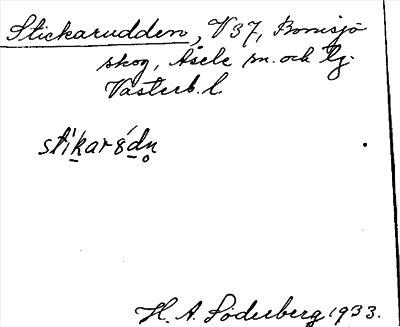 Stickarudden, V37, Bomsjö
skog, Åsele sn. och lg.
Västerb. l.
stikar8dn̥
H. A. Söderberg 1933.